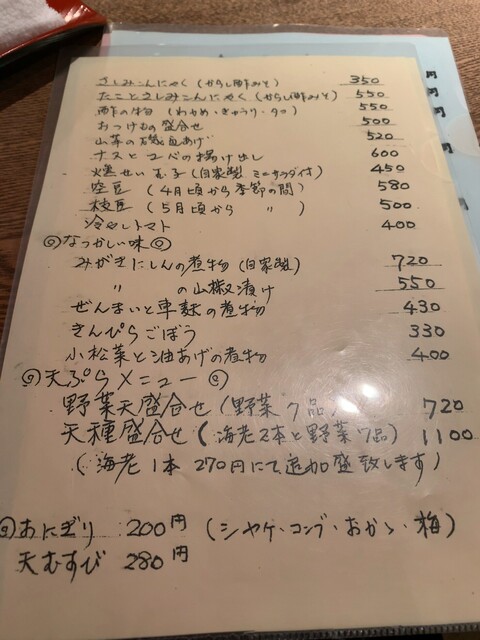 さしみこんにゃく（からし酢みそ） 350
たことさしみこんにゃく（からし酢みそ） 550
酢の物（わかめ・きゅうり・タコ） 550
おつけもの盛合せ 500
山菜の磯辺あげ 520
ナスとユバの揚げ出し 600
燻せい玉子（自家製 ミニサラダ付） 450
空豆（4月頃から季節の間） 580
枝豆（5月頃から 〃 ） 500
冷やしトマト 400
◎なつかしい味◎
みがきにしんの煮物（自家製） 720
〃 の山椒漬け 550
ぜんまいと車麩の煮物 430
きんぴらごぼう 330
小松菜と油あげの煮物 400
◎天ぷらメニュー◎
野菜天盛合せ（野菜7品） 720
天種盛合せ（海老2本と野菜7品） 1100
（海老1本 270円にて追加盛致します）
◎おにぎり 200円（シャケ・コンブ・おかか・梅）
天むすび 280円